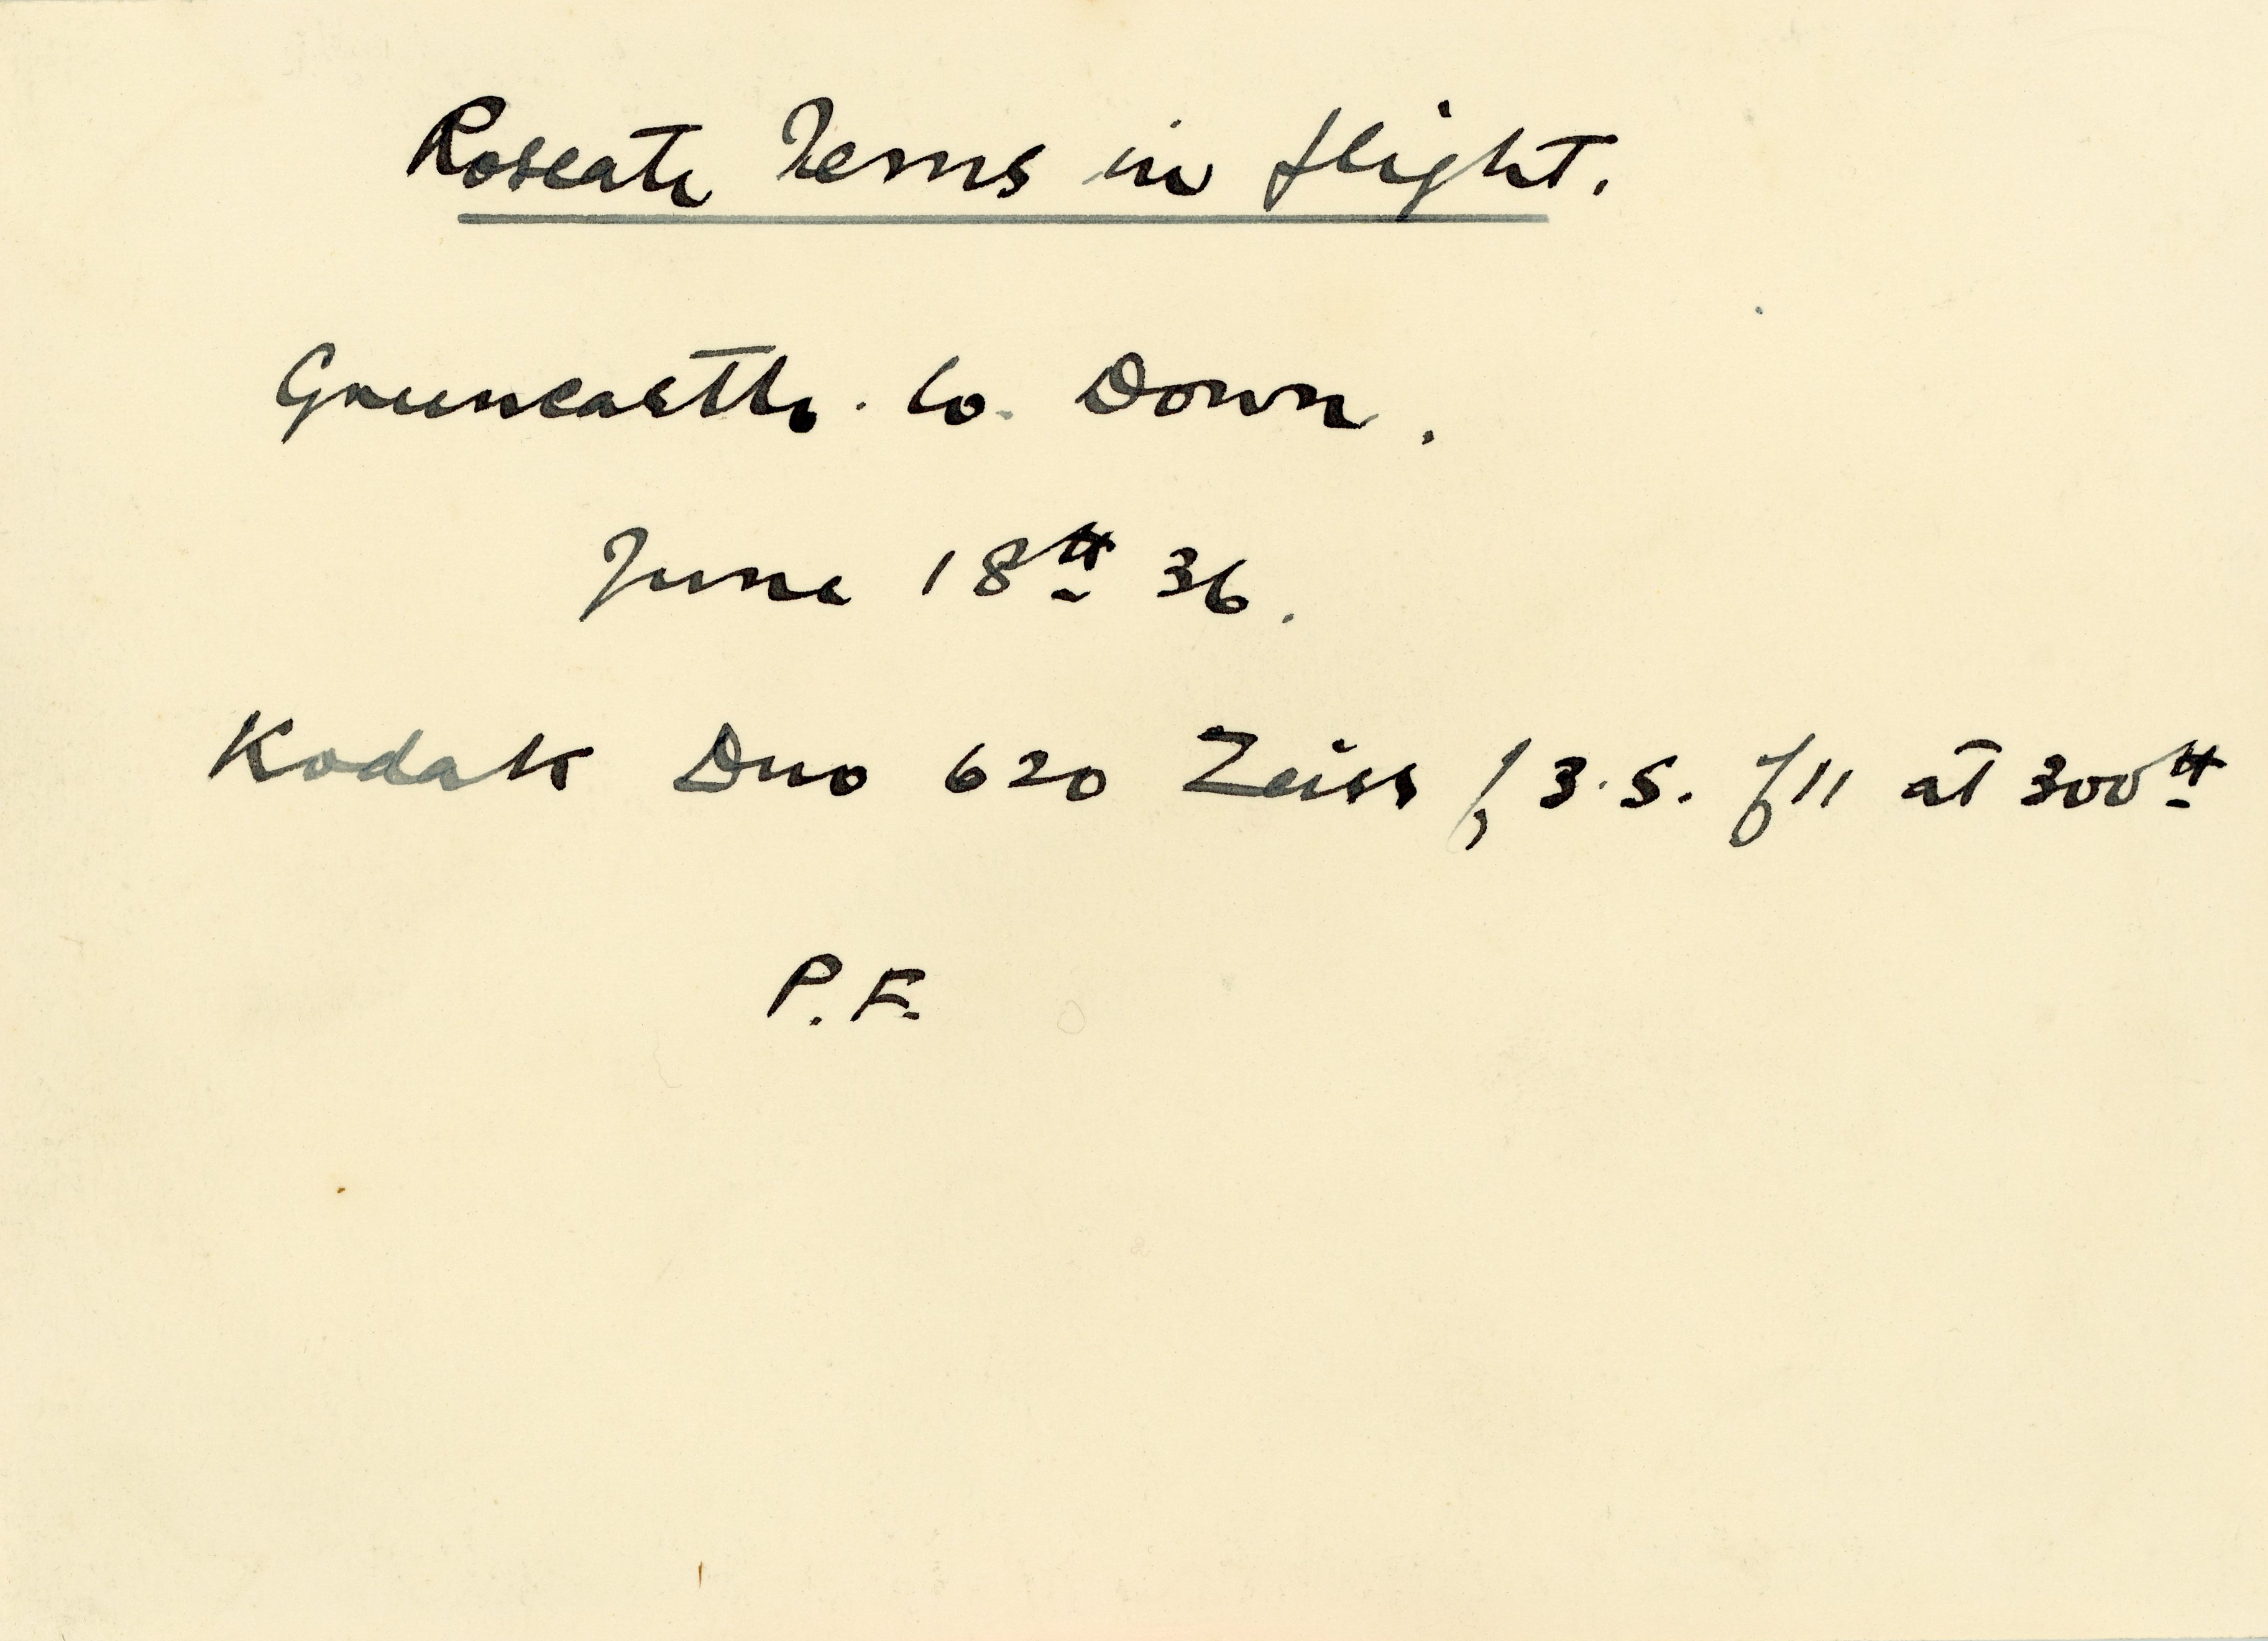 Roseate Terns in flight.
Greencastle. Co. Down.
June 18th 36.
Kodak Duo 620 Zeiss f 3.5. f 11 at 300th
P.F.